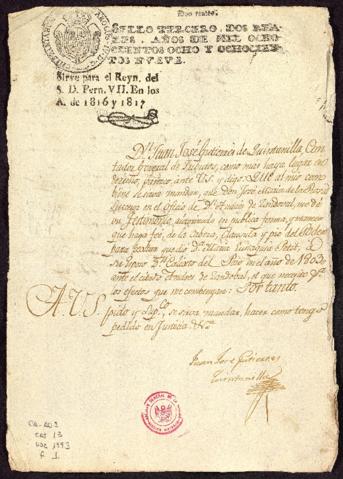 Dos reales.
SELLO TERCERO, DOS REA
LES, AÑOS DE MIL OCHO
CIENTOS OCHO Y OCHOCIEN
TOS NUEVE.
Sirve para el Reyn. del
S. D. Fern. VII. En los
A. de 1816 y 1817
Dn. Juan José Gutierrez de Quintanilla, Con
tador general de Tributos, como mas haya lugar en
derecho, ante V.S. y digo: Que al mio con
biene se sirva mandar, que Don José
en el Oficio de Dn. de Sandoval, me dé
un Testimonio, autorizado en publica forma, y manera
que haga feé, de la Cabeza, Clausula y pie del Poder
para textar que dio Da. Maria Petit, á
su Esposo Dn. del Rio en el año de 180
ante el citado Andres de Sandoval, el que necesito pa.
los efectos que me convengan: Por tanto.
A. V.S. pido y Supco. se sirva mandar, hacer como tengo
pedido en Justicia &a.
Juan José Gutierrez
Quintanilla
CA-GO2
CAJ 13
DOC 1993
f. 1